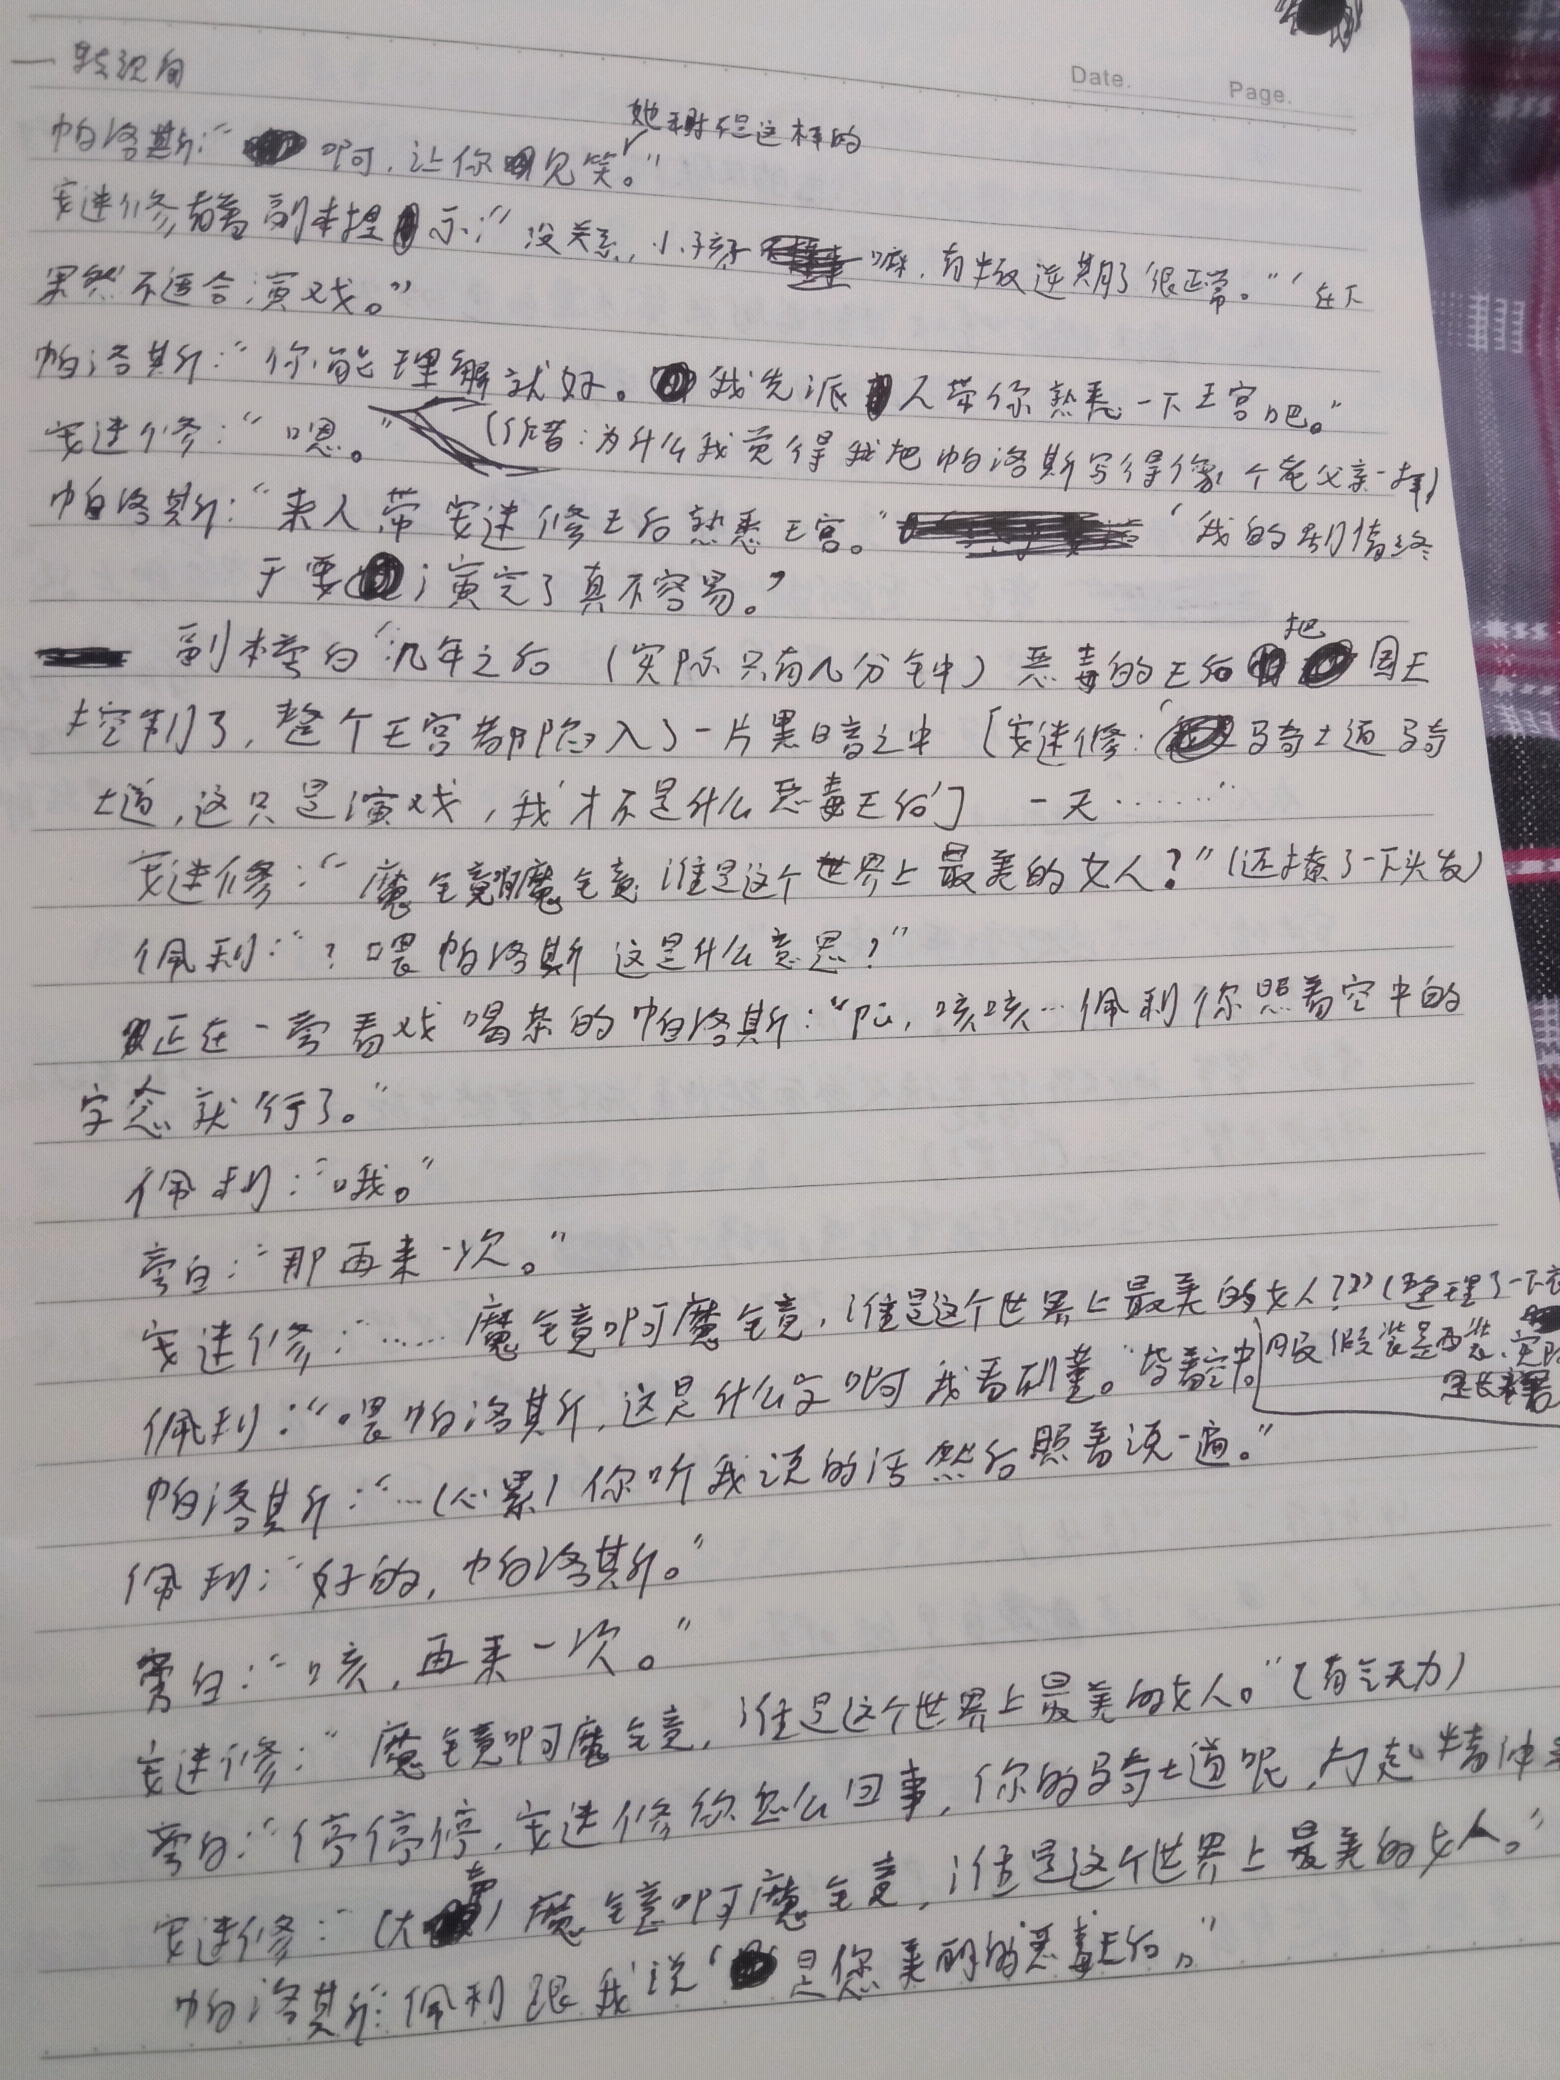 一转视角
Date. Page.
她平时不是这样的
帕洛斯：“啊，让你见笑。”
安迷修看着副本提示：“没关系，小孩子嘛，有叛逆期了很正常。”‘在下
果然不适合演戏。”
帕洛斯：“你能理解就好。我先派人带你熟悉一下王宫吧。”
安迷修：“嗯。”（作者：为什么我觉得我把帕洛斯写得像个老父亲一样）
帕洛斯：“来人带安迷修王后熟悉王宫。”‘我的剧情终
于要演完了真不容易。’
副本旁白‘几年之后（实际只有几分钟）恶毒的王后把国王
控制了，整个王宫都陷入了一片黑暗之中［安迷修：‘骑士道骑
士道，这只是演戏，我才不是什么恶毒王后’］ 一天……”
安迷修：“魔镜啊魔镜谁是这个世界上最美的女人？”（还撩了一下头发）
佩利：“？喂帕洛斯这是什么意思？”
正在一旁看戏喝茶的帕洛斯：“咳咳…佩利你照着空中的
字念就行了。”
佩利：“哦。”
旁白：“那再来一次。”
安迷修：“……魔镜啊魔镜，谁是这个世界上最美的女人？”（整理了一下衣
服假装是西装，实际
是长裙
佩利：“喂帕洛斯，这是什么字啊我看不懂。”指着空中。
帕洛斯：“…（心累）你听我说的话然后照着说一遍。”
佩利：“好的，帕洛斯。”
旁白：“咳，再来一次。”
安迷修：“魔镜啊魔镜，谁是这个世界上最美的女人。”（有气无力）
旁白：“停停停，安迷修你怎么回事，你的骑士道呢，打起精神来
安迷修：“（大声）魔镜啊魔镜，谁是这个世界上最美的女人。”
帕洛斯：佩利跟我说‘是您美丽的恶毒王后。”